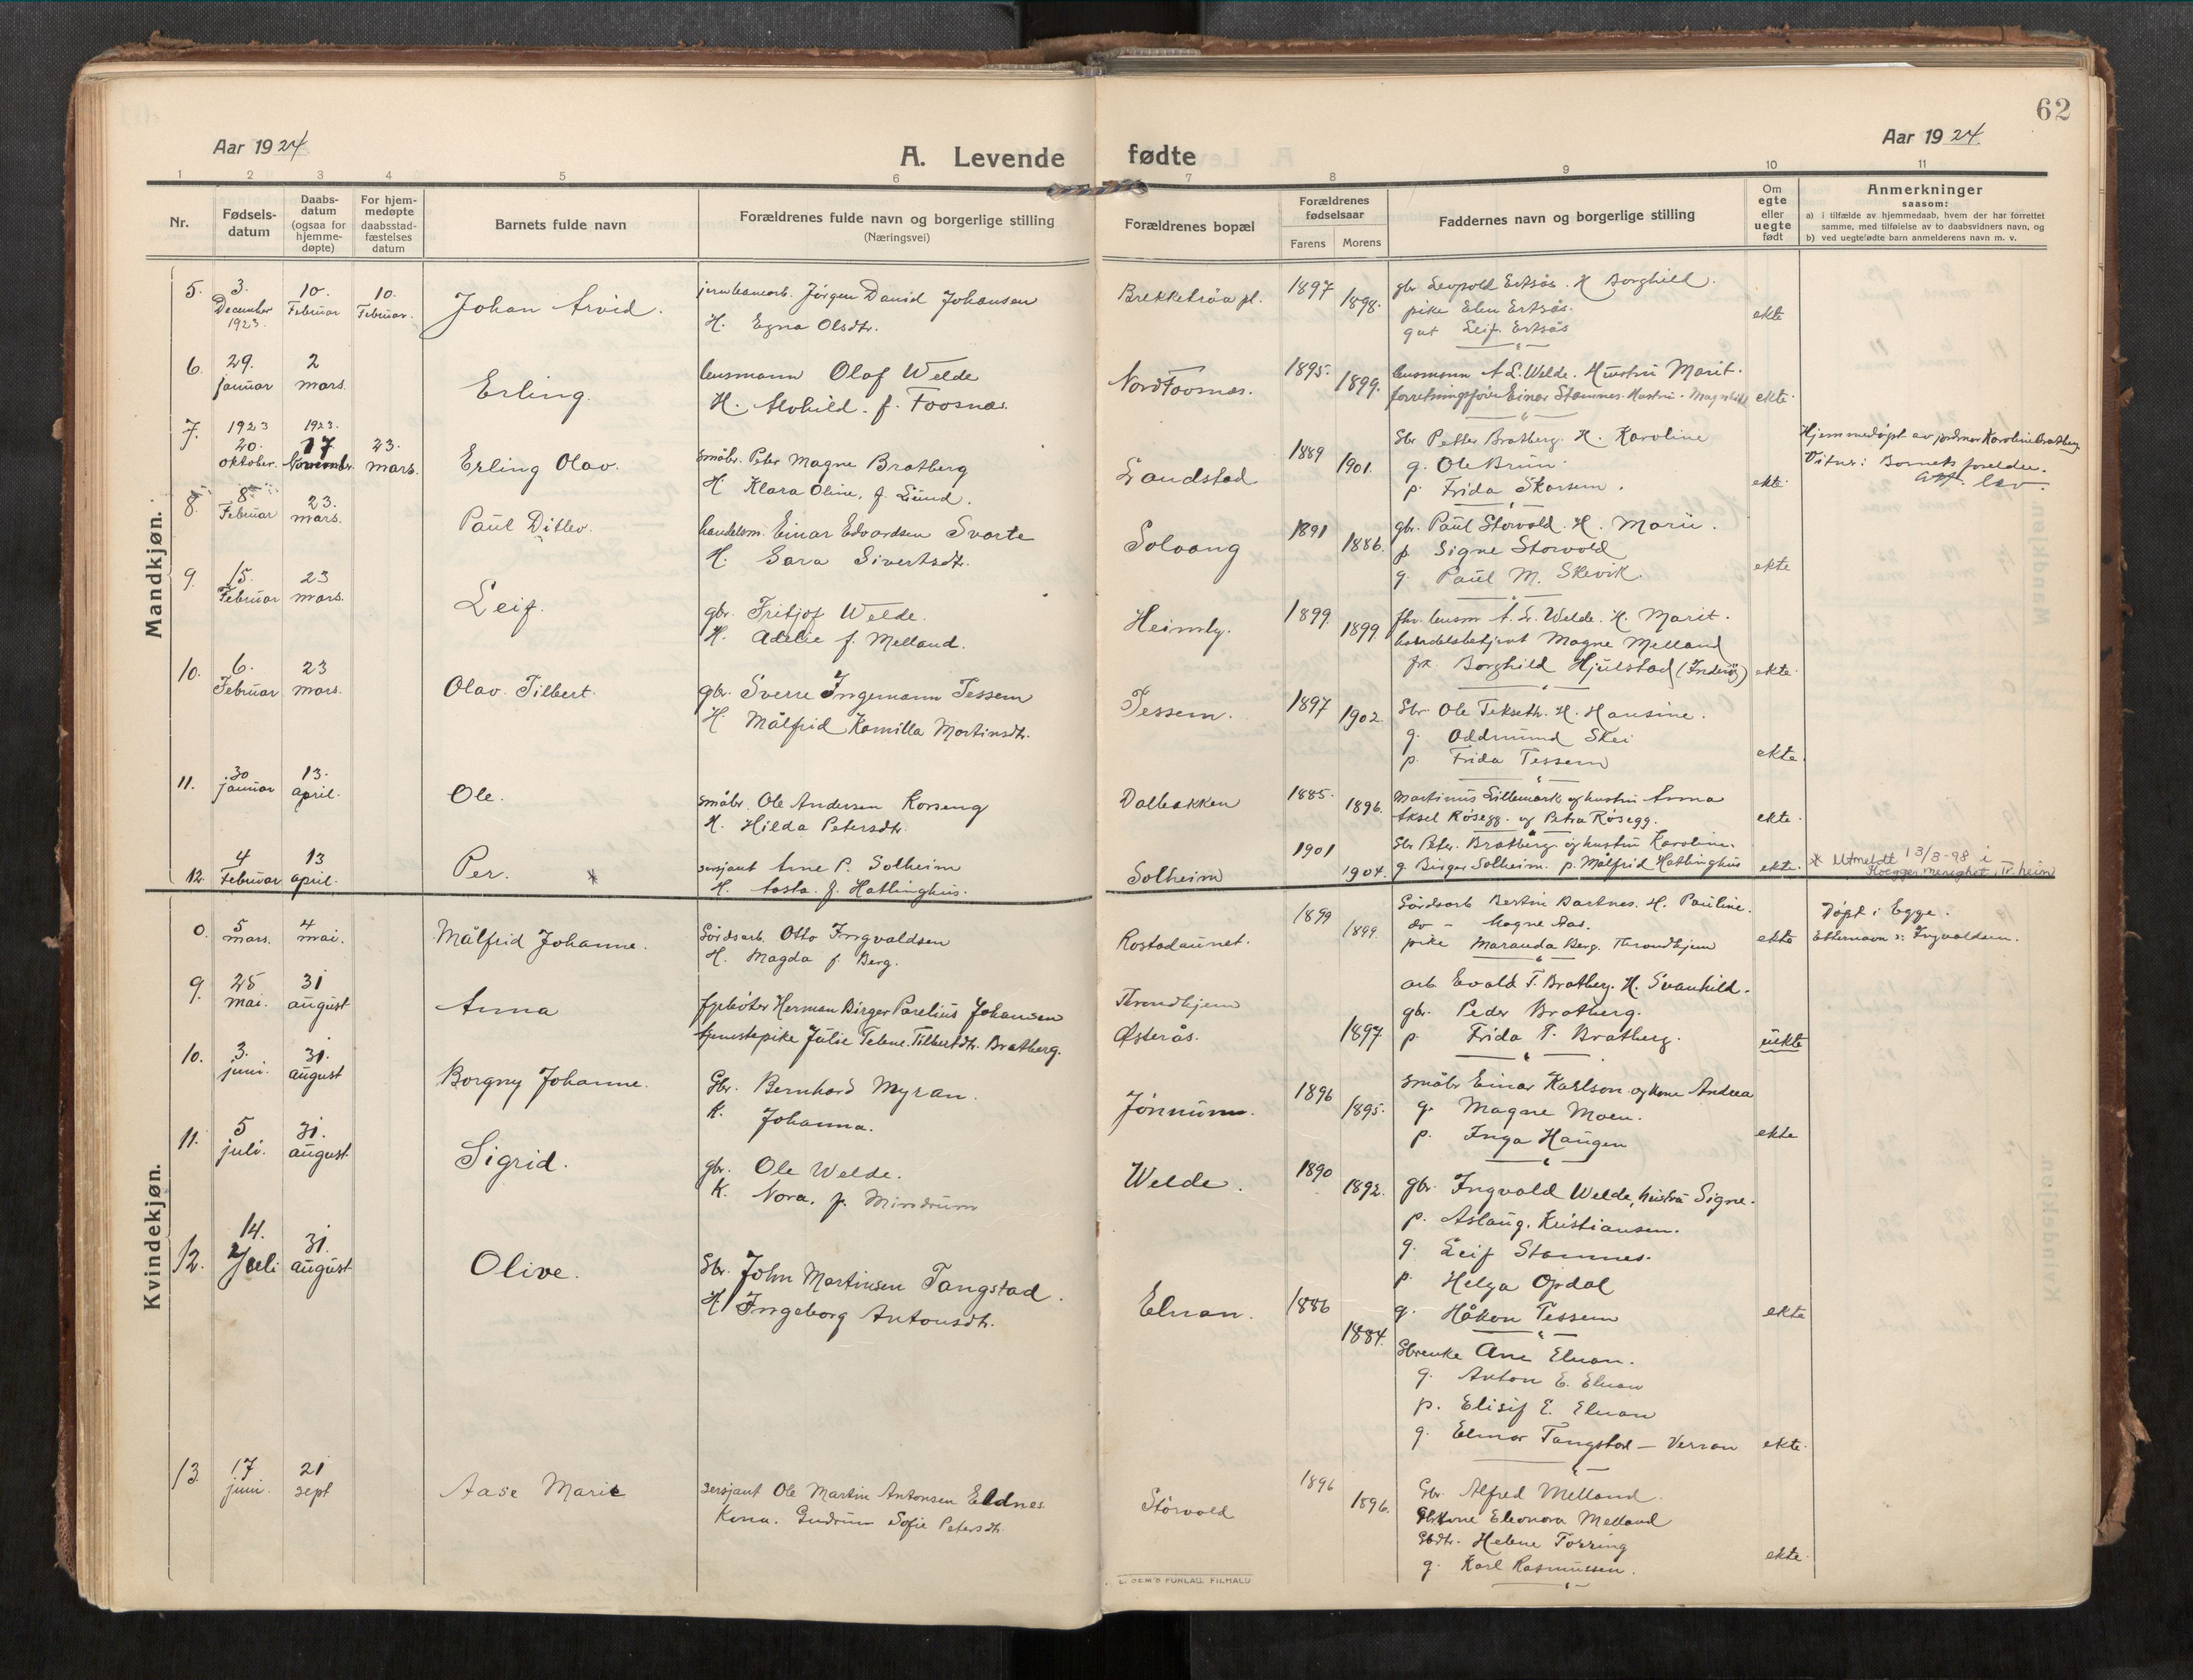 62
Aar 1924
A. Levende fødte
Aar 1924.
1 2 3 4 5 6 7 8 9 10 11
Nr.
Fødsels-
datum
Daabs-
datum
(ogsaa for
hjemme-
døpte)
For hjem-
medøpte
daabsstad-
fæstelses
datum
Barnets fulde navn
Forældrenes fulde navn og borgerlige stilling
(Næringsvei)
Forældrenes bopæl
Forældrenes
fødselsaar
Farens Morens
Faddernes navn og borgerlige stilling
Om
egte
eller
uegte
født
Anmerkninger
saasom:
a) i tilfælde av hjemmedaab, hvem der har forrettet
samme, med tilføielse av to daabsvidners navn, og
b) ved uegtefødte barn anmelderens navn m. v.
Mandkjøn.
5. 3. December 1923. 10. Februar 10. Februar.
Johan Arvid.
jernbanearb. Jørgen David Johansen
H. Egna Olsdtr.
Brekketrøa pl. 1897 1898.
gbr. Leopold Ertsås. H Borghild.
pike Elen Ertsås.
gut Leif Ertsås
ekte
6. 29. januar 2 mars.
Erling.
lensmann Olaf Welde
H. Alvhild. f. Foosnæs.
Nord Foosnæs. 1895. 1899.
lensmann A. L. Welde. Hustru Marit.
forretningsfører Einar Stamnes. Hustru.
ekte
7. 1923 20. oktober. 1923. 17 November. 23. mars.
Erling Olav.
småbr. Peter Magne Bratberg
H. Klara Oline, f. Lund.
Landstad 1889 1901.
Gbr Petter Bratberg. H. Karoline
g. Ole Brun.
p. Frida Skarsem.
ekte
Hjemmedøpt av jordmor Karoline Bratberg
Vitner: Barnets foreldre.
8. 8. Februar 23. mars.
Paul Ditlev.
handelsm. Einar Edvardsen Svarte
H. Sara Sivertsdtr.
Solvang 1891 1886.
gbr. Paul Storvold. H. Marie.
p. Signe Storvold
g. Paul M. Skevik.
ekte
9. 15. Februar 23 mars.
Leif.
gbr. Fritjof Welde.
H. Adelie f. Melland.
Heimly. 1899 1899.
fhv. lensm A. L. Welde. H. Marit.
handelsbetjent Magne Melland
frk Borghild Hjulstad (Inderøy)
ekte
10. 6. Februar 23 mars.
Olav Tilbert.
gbr. Sverre Ingemann Tessem
H Målfrid Kamilla Martinsdtr.
Tessem. 1897 1902.
Gbr Ole Tekseth. H. Hansine.
g. Oddmund Skei
p. Frida Tessem
ekte.
11. 30 januar 13. april.
Ole.
småbr. Ole Andersen Korseng
H. Hilda Petersdtr.
Dalbakken 1885. 1896.
Martinus Lillemark og hustru Anna
Aksel Røsegg. og Petra Røsegg.
ekte.
12. 4 Februar 13 april.
Per. *
sersjant Arne P. Solheim
H. Aasta. f. Hatlinghus.
Solheim 1901 1904.
Gbr Peter Bratberg og hustru Karoline.
g. Birger Solheim. p. Målfrid Hatlinghus
ekte.
* Utmeldt 13/3-98 i
Kvindekjøn.
5 mars. 4 mai.
Målfrid Johanne.
Gårdsarb. Otto Ingvaldsen
H. Magda f. Berg.
Rostadaunet. 1899 1899.
Gårdsarb Bertin Bartnes. H. Pauline.
do - Magne Aas.
pike Maranda Berg. Throndhjem
ekte
Døpt i Egge.
Etternavn : Ingvaldsen.
9. 25 mai. 31 august
Anna
fyrbøter Herman Birger Parelius Johansen
tjenestepike Julie Telene Tilbertdtr. Bratberg.
Throndhjem
Østerås. 1897
arb Evald T. Bratberg. H. Svanhild.
gbr. Peder Bratberg.
p. Frida T. Bratberg.
uekte
10. 3. juni. 31. august
Borgny Johanne.
Gbr. Bernhard Myran.
K. Johanna.
Jønnum. 1896 1895.
småbr Einar Karlson og kone Andrea
g. Magne Moen.
p. Inga Haugen
ekte
11. 5 juli. 31. august
Sigrid.
gbr. Ole Welde.
K. Nora. f. Mindrum
Welde. 1890 1892.
gbr. Ingvald Welde, hustru Signe.
p. Aslaug. Kristiansen.
g. Leif Stamnes.
p. Helga Opdal
g. Håkon Tessem
ekte
12. 14. Juli 31. august
Olive.
Gbr. John Martinsen Tangstad.
H. Ingeborg Antonsdtr.
Elnan. 1886 1884.
Gbrenke Ane Elnan.
g. Anton E. Elnan
p. Elisif E. Elnan
g. Elmar Tangstad - Verran
ekte.
13. 17 juni. 21 sept
Aase Marie
sersjant Ole Martin Antonsen Eldnes
Kona. Gudrun Sofie Petersdtr.
Storvold 1896 1896.
Gbr. Alfred Melland.
Gbrkone Eleonora Melland
Gbdtr. Helene Torring
g. Karl Rasmussen.
ekte.